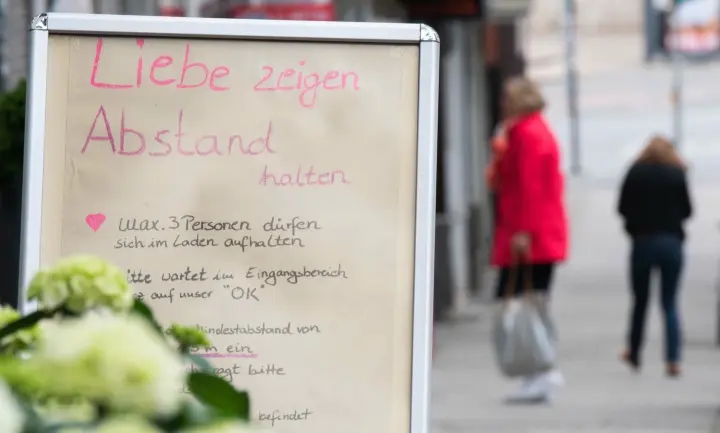 Liebe zeigen
Abstand
halten
max. 3 Personen dürfen
sich im Laden aufhalten
itte wartet im Eingangsbereich
auf unser "OK"
indestabstand von
m ein
ragt bitte
befindet